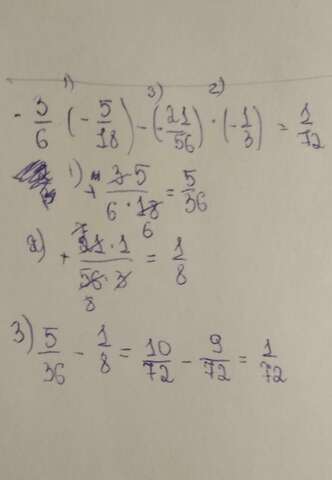 1) 3) 2)
- 3/6 (- 5/18) - (- 21/56) · (- 1/3) = 1/72
1) + 3·5/6·18 = 5/36
6
7
2) + 21·1/56·3 = 1/8
8
3) 5/36 - 1/8 = 10/72 - 9/72 = 1/72